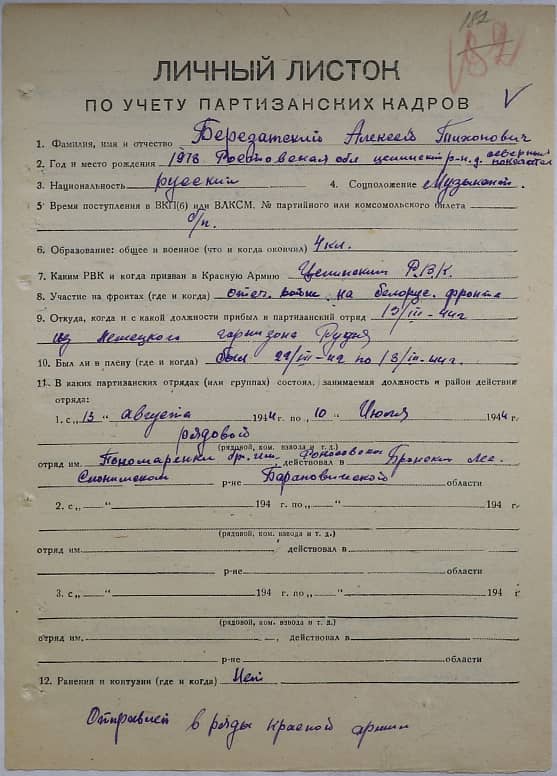 182
ЛИЧНЫЙ ЛИСТОК
ПО УЧЕТУ ПАРТИЗАНСКИХ КАДРОВ
1. Фамилия, имя и отчество Березатский Алексей Тихонович
2. Год и место рождения 1918 Ростовская обл целинск р-н д. северный
3. Национальность русский 4. Соцположение Музыкант.
5 Время поступления в ВКП(б) или ВЛКСМ, № партийного или комсомольского билета
б/п.
6. Образование: общее и военное (что и когда окончил) 4 кл.
7. Каким РВК и когда призван в Красную Армию Целинским Р.В.К.
8. Участие на фронтах (где и когда) отеч. войне на белорус. фронте
9. Откуда, когда и с какой должности прибыл в партизанский отряд 13/III-44г
из Немецкого гарнизона Рудня
10. Был ли в плену (где и когда) был по 13/III-44г.
11. В каких партизанских отрядах (или группах) состоял, занимаемая должность и район действия
отряда:
1. с „13" августа 1944 г. по „10" Июля 1944 г.
рядовой
(рядовой, ком. взвода и т. д.)
отряд им. Пономаренки бр. им. действовал в лес.
Слонимском р-не Барановичской области
2. с „ " 194 г. по „ " 194 г.
(рядовой, ком. взвода и т. д.)
отряд им. действовал в
р-не области
3. с „ " 194 г. по „ " 194 г
(рядовой, ком. взвода и т. д.)
отряд им. , действовал в
р-не области
12. Ранения и контузии (где и когда) Нет
Отправлен в ряды красной армии